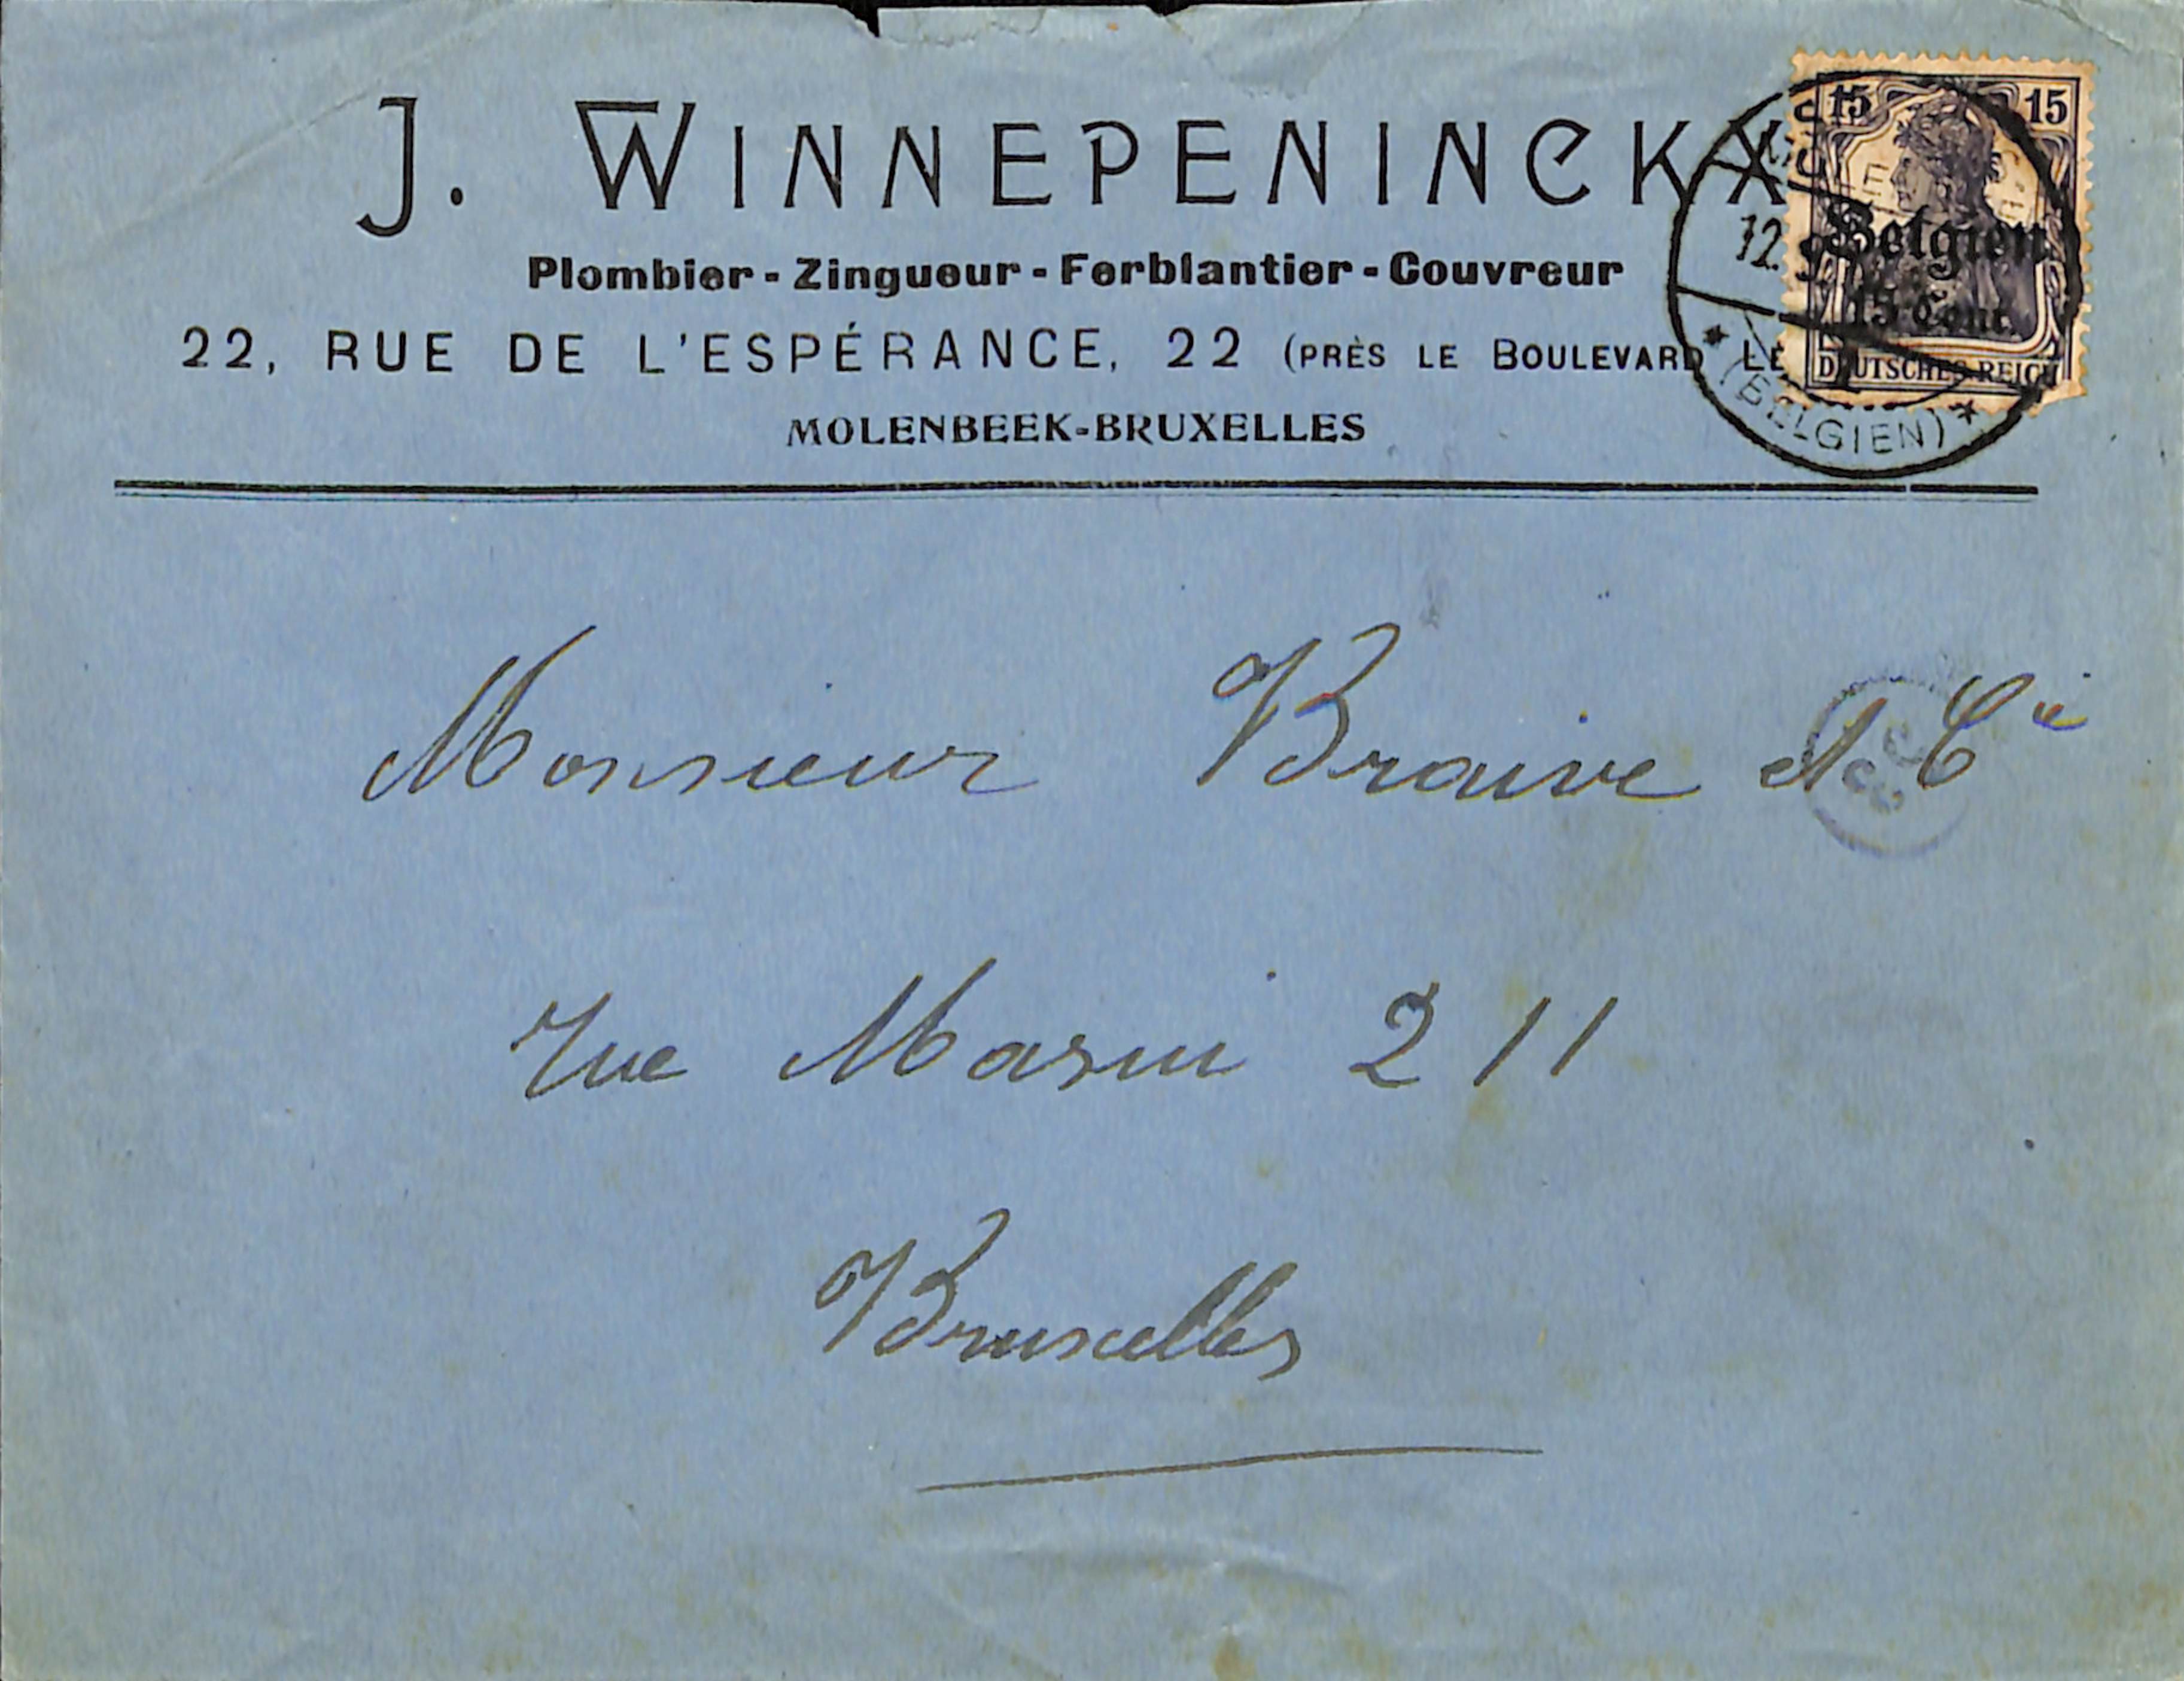 J. WINNEPENINCKX
Plombier - Zingueur - Ferblantier - Couvreur
22, RUE DE L'ESPÉRANCE, 22 (PRÈS LE BOULEVARD LÉ
MOLENBEEK-BRUXELLES
15 15
Belgien
15 Cent.
DEUTSCHES REICH
12. 9.
* (BELGIEN) *
Monsieur Braive & Cie
rue Masui 211
Bruxelles